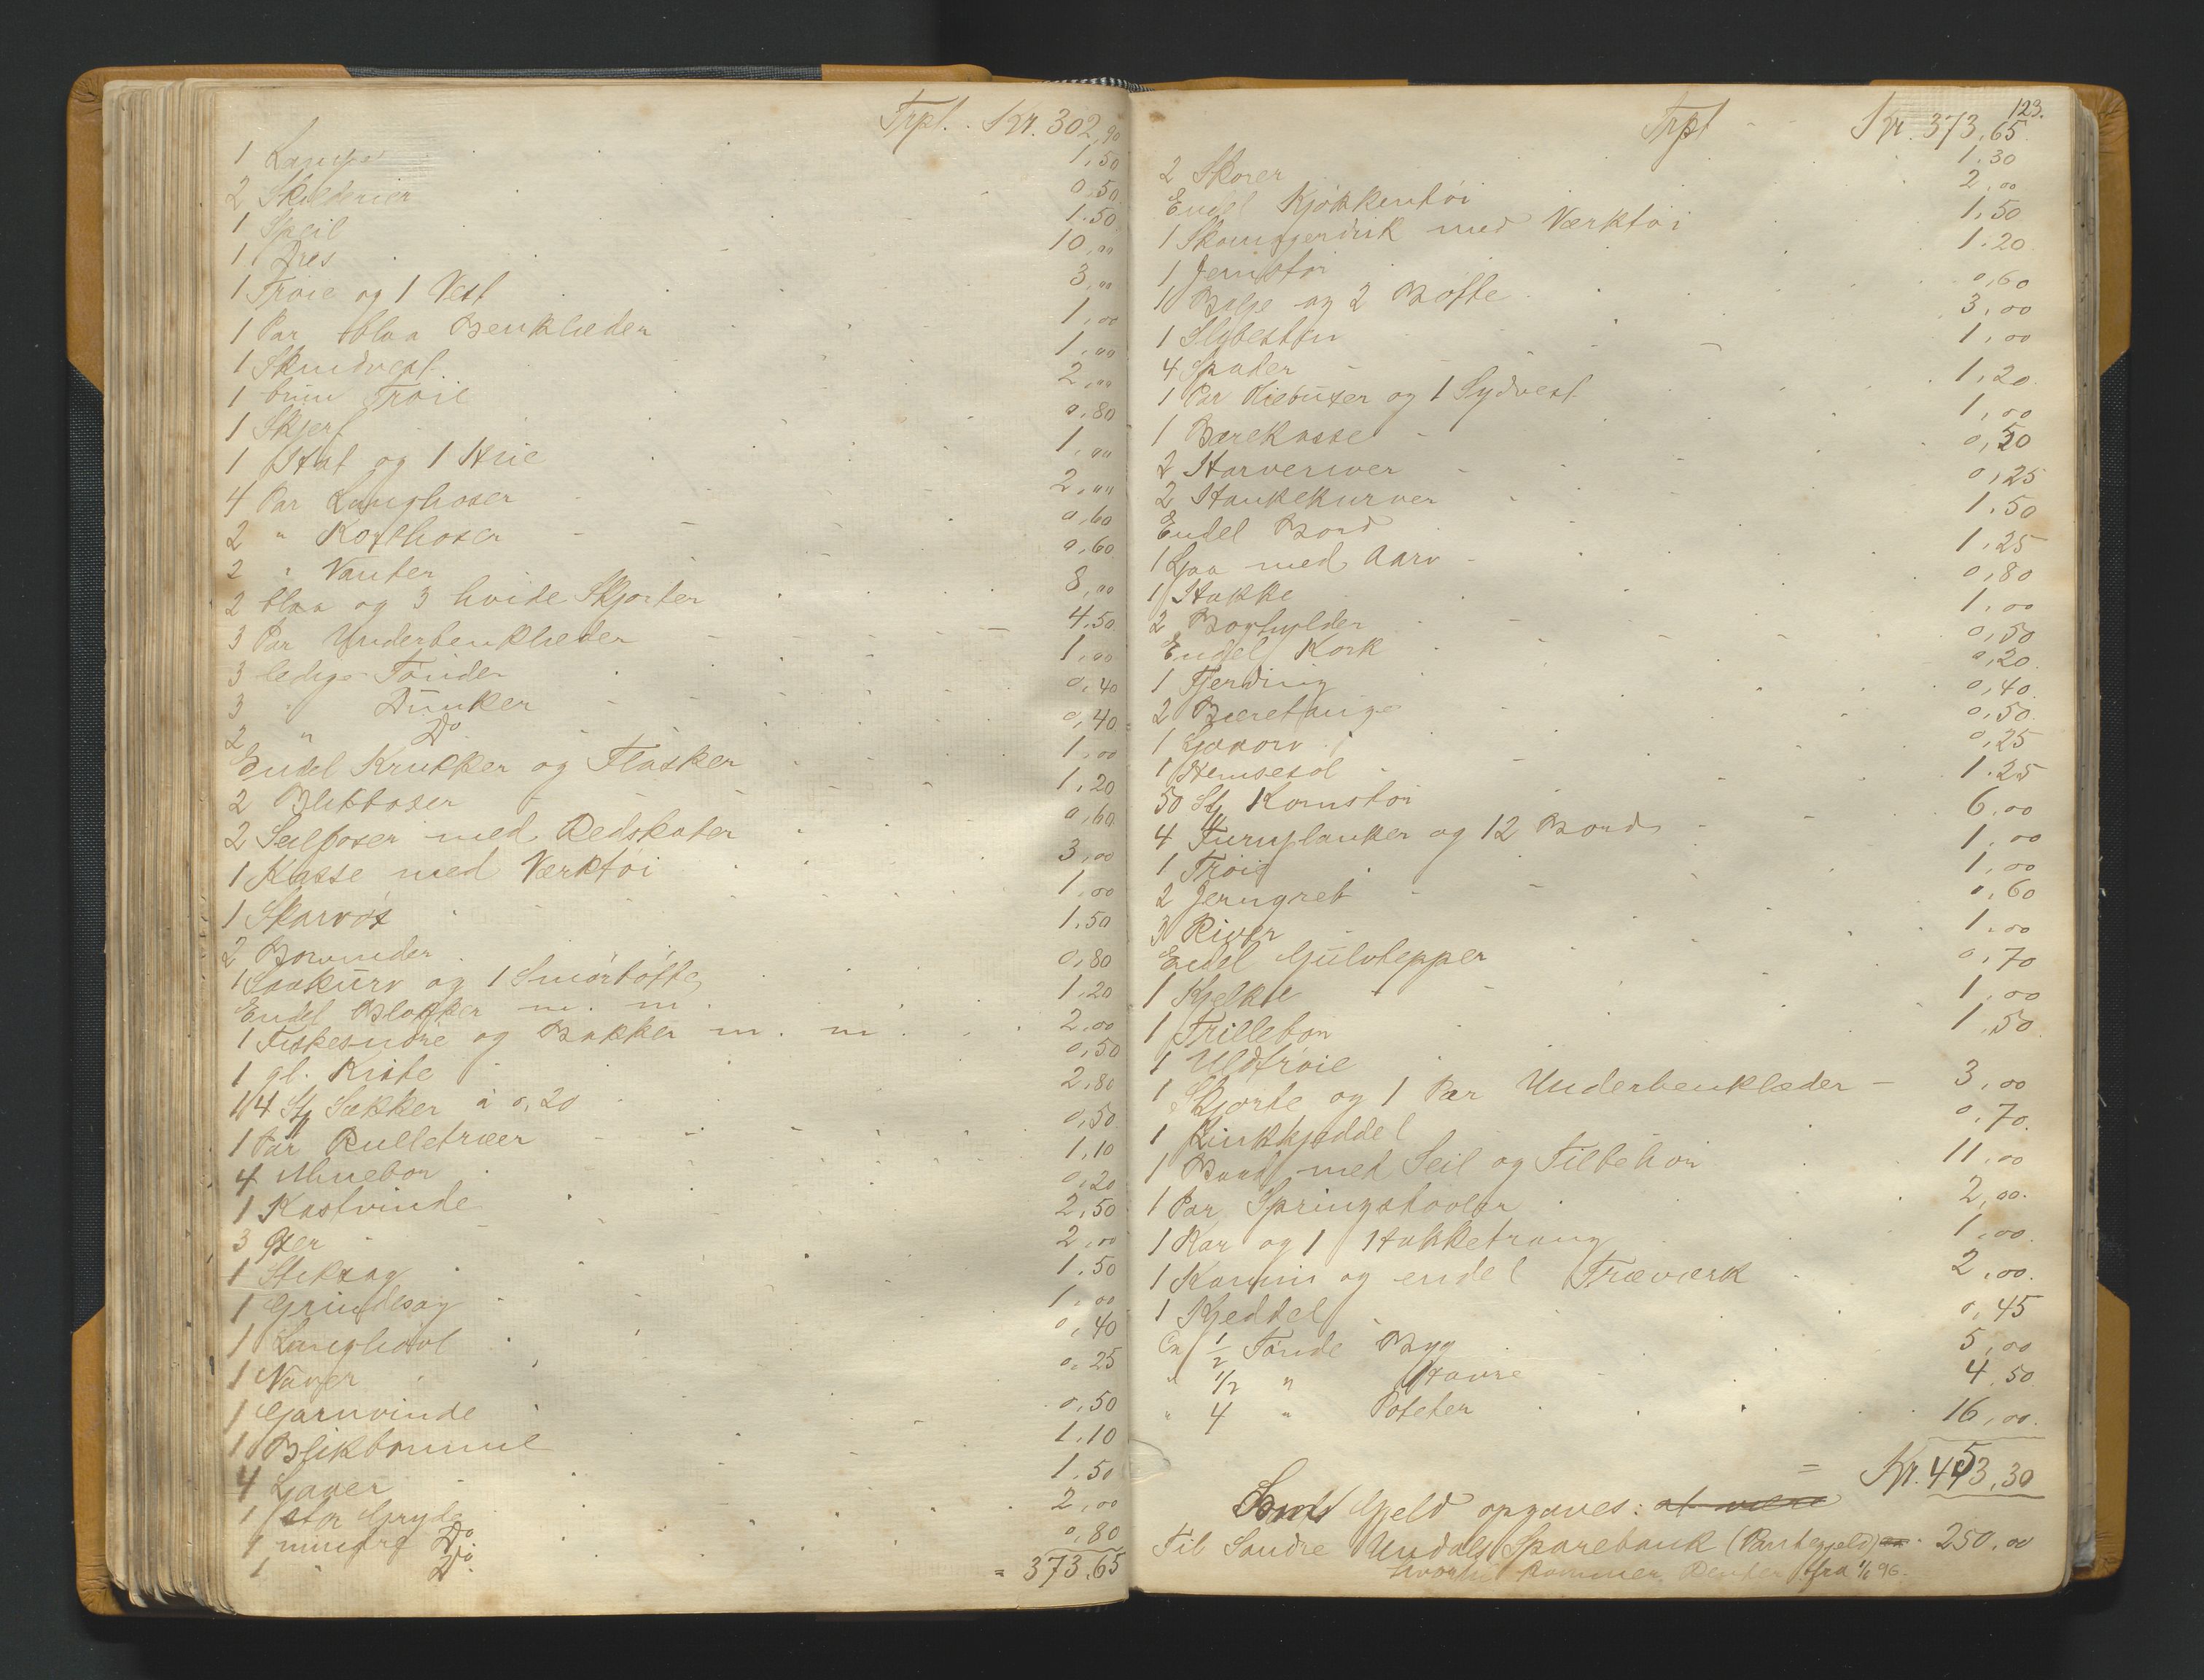 Trpt. Kr. 302,90
1 Lampe 1,50
2 Skilderier 0,50
1 Speil 1.50
1 Dres 10,00
1 Trøie og 1 Vest 3,00
1 Par blaa Benklæder 1,00
1 Skindvest 1,00
1 brun Trøie 2,00
1 Skjerf 0,80
1 Hat og 1 Hue 1,00
4 Par Langhoser 2,00
2 " Korthoser 0,60
2 " Vanter 0,60
2 blaa og 3 hvide Skjorter 8,00
3 Par Underbenklæder 4.50
3 ledige Tønder 1,00
3 " Dunker 0,40
2 " Do 0,40
Endel Krukker og Flasker 1,00
2 Blikboxer 1,20
2 Seilposer med Redskaber 0,60
1 Kasse med Værktøi 3,00
1 Skarvøx 1,00
2 1.50
1 Saakurv og 1 Smørbøtte 0,80
Endel Blokker m. m. 1.20
1 Fiskesnøre og Bakker m. m. 2,00
1 gl. Kiste 0,50
14 St Sækker à 0,20 2,80
1 Par Rulletræer 0,50
4 Minebor 1,10
1 Kastvinde 0,20
3 Øxer 2,50
1 Stiksag 2,00
1 Grindsag 1.50
1 Langhøvl 1,00
1 Naver 0,40
0,25
1 Garnvinde 0,50
1 Blikbomme 1.10
4 Ljaaer 1.50
1 stor Gryde 2,00
1 mindre Do 0,80
1 " Do
= 373.65
123.
Trpt Kr. 373,65
2 Skorer 1.30
Endel Kjøkkentøi 2,00
1 Skomagerdisk med Værktøi 1,50
1 Jernstør 1.20
1 Balje og 2 Bøtte 0,60
1 Slibesten 3,00
4 Spader 1,00
1 Par Oliebuxer og 1 Sydvest 1,20
1 Bærekasse 1,00
2 Harveriver 0,50
2 Haukekurver 0,25
Endel Bord 1.50
1 Ljaa med Aarv 1.25
1 Hakke 0,80
2 Boghylder 1,00
Endel Kork 0,50
1 Fjerding 0,20
2 Bæretauge 0,40
1 Ljaaorv 0,50
1 Hemsesæl 0,25
50 St Kornstør 1.25
4 Furuplanker og 12 Bord 6.00
1 Trøie 1,00
2 Jerngreb 1,00
3 River 0,60
Endel Gulvtepper 1.00
1 Kjelke 0,70
1 Trillebør 1,00
1 Uldtrøie 1,50
1 Skjorte og 1 Par Underbenklæder 3,00
1 Zinkkjeddel 0,70
1 Baad med Seil og Tilbehør 11,00
1 Par Springstøvler 2,00
1 Kar og 1 Hakketraug 1,00
1 Kamin og endel Træværk 2,00
1 Kjeddel 0,45
Ca 1/2 Tønde Byg 5,00
" 1/2 " Havre 4.50
" 4 " Poteter 16,00
= Kr. 453,30
Boets Gjeld opgaves: at være
Til Søndre Undals Sparebank (Pantegjeld) 250,00
hvortil kommer Renter fra 1/1 96.